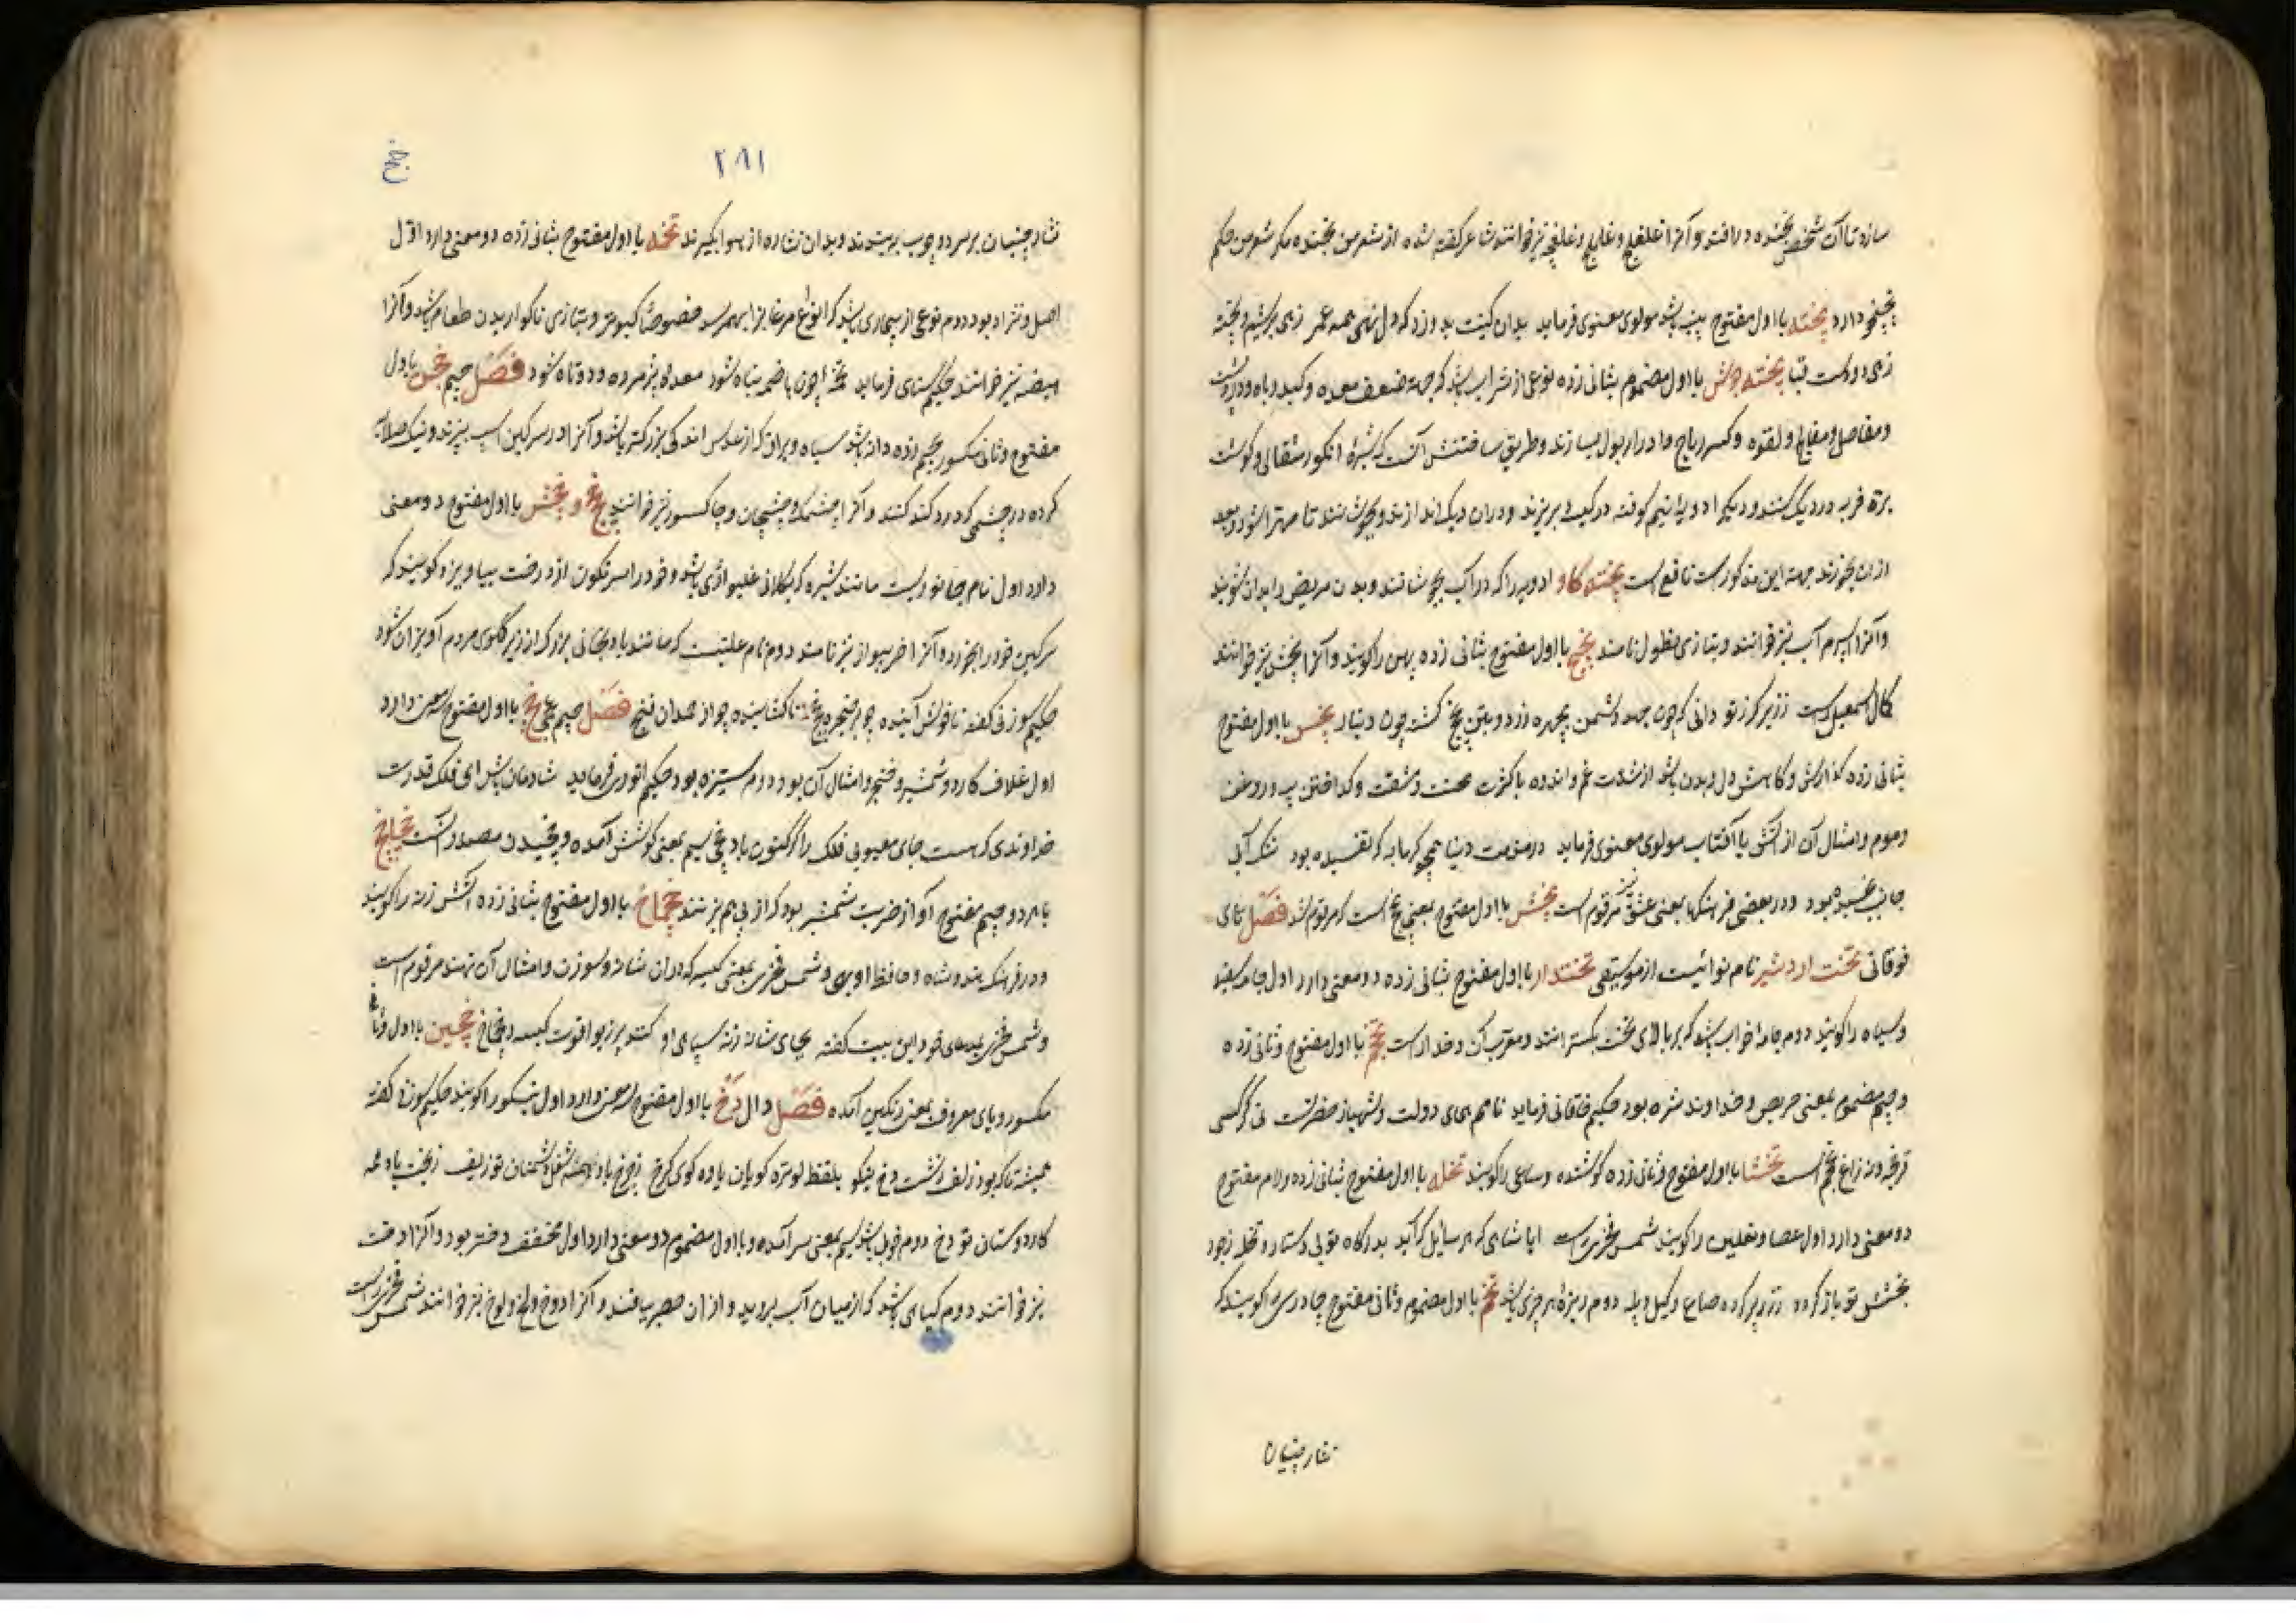 سازد تا آن شخص بخنده درافتد و آنرا غلغلج و غلیج و غلغلیچه نیز خوانند شاعر گفته شده از شعر من بخنده مگر شعر من حکم
دارد پخته با اول مفتوح پنبه باشد مولوی معنوی فرماید بدان کیت بدوزد که دل نهی همه عمر زهی بریشم و پخته
زهی دوست قبا پخته جوش با اول مضموم بثانی زده نوعی از شراب باشد که جهة ضعف معده و کبد و باه و درد پشت
و مفاصل و فالج و لقوه و کسر ریاح و ادرار بول بسازند و طریق ساختنش آنست که شیرهٔ انگور مثقالی و گوشت
برهٔ فربه در دیگ کنند و دیگر ادویه را نیم کوفته در کیسه بریزند و در آن دیگ اندازند و بجوشانند تا مهرا شود و بعد
از آن بخورند جهة این مذکورست نافع است پخته کاو ادویه را که در آب بجوشانند و بدن مریض را بدان شویند
و آنرا اسپرم آب نیز خوانند و بتازی نطول نامند پخچ با اول مفتوح بثانی زده پهن را گویند و آنرا پخش نیز خوانند
کمال اسمعیل راست زیر گرز تو دانی که چون جهد دشمن چهره زرد و بینی پخچ گشته چون دینار پخس با اول مفتوح
بثانی زده گدازش و کاهش دل و بدن باشد از شدت غم و اندوه یا کثرت محنت و مشقت و گداختن پیه و روغن
و موم و امثال آن از آتش یا آفتاب مولوی معنوی فرماید در صورت دنیا همچو گرمابه که تفسیده بود تنگ آیی
جان پخسیده بود و در بعضی فرهنگها بمعنی عشق نیز مرقوم است پخش با اول مفتوح بمعنی پخچ است که مرقوم شد فصل تای
فوقانی تخت اردشیر نام نوائیست از موسیقی تختدار با اول مفتوح بثانی زده دو معنی دارد اول جامه سفید
و سیاه را گویند دوم جامه خواب باشد که بر بالای تخت بگسترانند و معرب آن دخدارست تخجم با اول مفتوح و ثانی زده
و جیم مضموم بمعنی حریص و خداوند شره بود حکیم خاقانی فرماید نامم همای دولت و شهباز حضرتست نی کرکس
قریظه و نه زاغ تخجم است تخشا با اول مفتوح و ثانی زده کوشنده و ساعی را گویند تخله با اول مفتوح بثانی زده و لام مفتوح
دو معنی دارد اول عصا و نعلین را گویند شمس فخری راست ایا شاهی که هر سایل که آید بدرگاه تو بی دستار و تخله ز جود
بخشش تو باز گردد ز زر پر کرده صاع و کیل و پله دوم ریزهٔ هر چیزی باشد تخم با اول مضموم و ثانی مفتوح چادری را گویند که
نثار چینان
۲۸۱
خ
نثار چینان بر سر دو چوب بربندند و بدان نثار از هوا بگیرند تخمه با اول مفتوح بثانی زده دو معنی دارد اول
اصل و نژاد بود دوم نوعی از بیماری باشد که انواع مرغانرا بهمرسد خصوصا کبوتر و بتازی ناگواریدن طعام باشد و آنرا
هیضه نیز خوانند حکیم سنائی فرماید تخمه چون باضمه تباه شود معده پژمرده و دوتاه شود فصل جیم با اول
مفتوح و ثانی مکسور بجیم زده دانه باشد سیاه و براق که از عدس اندکی بزرگتر باشد و آنرا در سرگین اسپ بپزند و نیک صلایه
کرده در چشمی که درد کند کنند و آنرا چشمک و چشمیزان و چاکسو نیز خوانند جخج و جخش با اول مفتوح دو معنی
دارد اول نام جانوریست مانند شبپره که بکلانی غلیواژی باشد و خود را سرنگون از درخت بیاویزد و گویند که
سرگین خود را بخورد و آنرا خربیواز نیز نامند دوم نام علتیست که مانند بادنجانی بزرگ از زیر گلوی مردم آویزان شود
حکیم سوزنی گفته فصل جیم عجمی چخ با اول مفتوح سه معنی دارد
اول غلاف کارد و شمشیر و خنجر و امثال آن بود دوم ستیزه بود حکیم انوری فرماید شادمان باش ای فلک قدرت
خداوندی که هست جای معیوبی فلک را گر کنون با او چخی سیم بمعنی کوشش آمده و چخیدن مصدر آنست چخاچخ
با هر دو جیم مفتوح آواز ضربت شمشیر بود که از پی هم بزنند چخماخ با اول مفتوح بثانی زده آتش زنه را گویند
و در فرهنگ هندوشاه و حافظ اوبهی و شمس فخری بمعنی کیسه که در آن شانه و سوزن و امثال آن نهند مرقوم است
و شمس فخری بمدعای خود این بیت گفته بجای شانه زنه سپاهی او کند پر زر و یاقوت کیسه و چخماخ چخین با اول و ثانی
مکسور و یای معروف بمعنی رنگین آمده فصل دال دخ با اول مفتوح سه معنی دارد اول نیکو را گویند حکیم سوزنی گفته
همیشه تا که بود زلف زشت و دخ نیکو بلفظ لوتره گویان یاوه گوی کرخ
کار دوستان تو دخ دوم فوج باشد سیم بمعنی سر آمده و با اول مضموم دو معنی دارد اول مخفف دختر بود و آنرا دخت
نیز خوانند دوم گیاهی باشد که از میان آب بروید و از آن حصیر بافند و آنرا دوخ و لخ و لوخ نیز خوانند شمس فخری راست